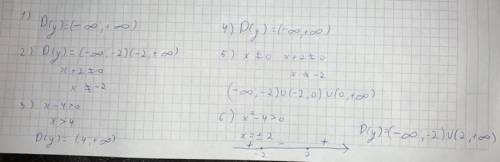 1)
D(y)=(-∞,+∞)
2) D(y)=(-∞,-2)(-2,+∞)
x+2≠0
x≠-2
3) x-4>0
x>4
D(y)=(4,+∞)
4) D(y)=(-∞,+∞)
5) x≠0 x+2≠0
x≠-2
(-∞,-2)∪(-2,0)∪(0,+∞)
6) x²-4>0
x=±2
+ - +
-2 2
D(y)=(-∞,-2)∪(2,+∞)